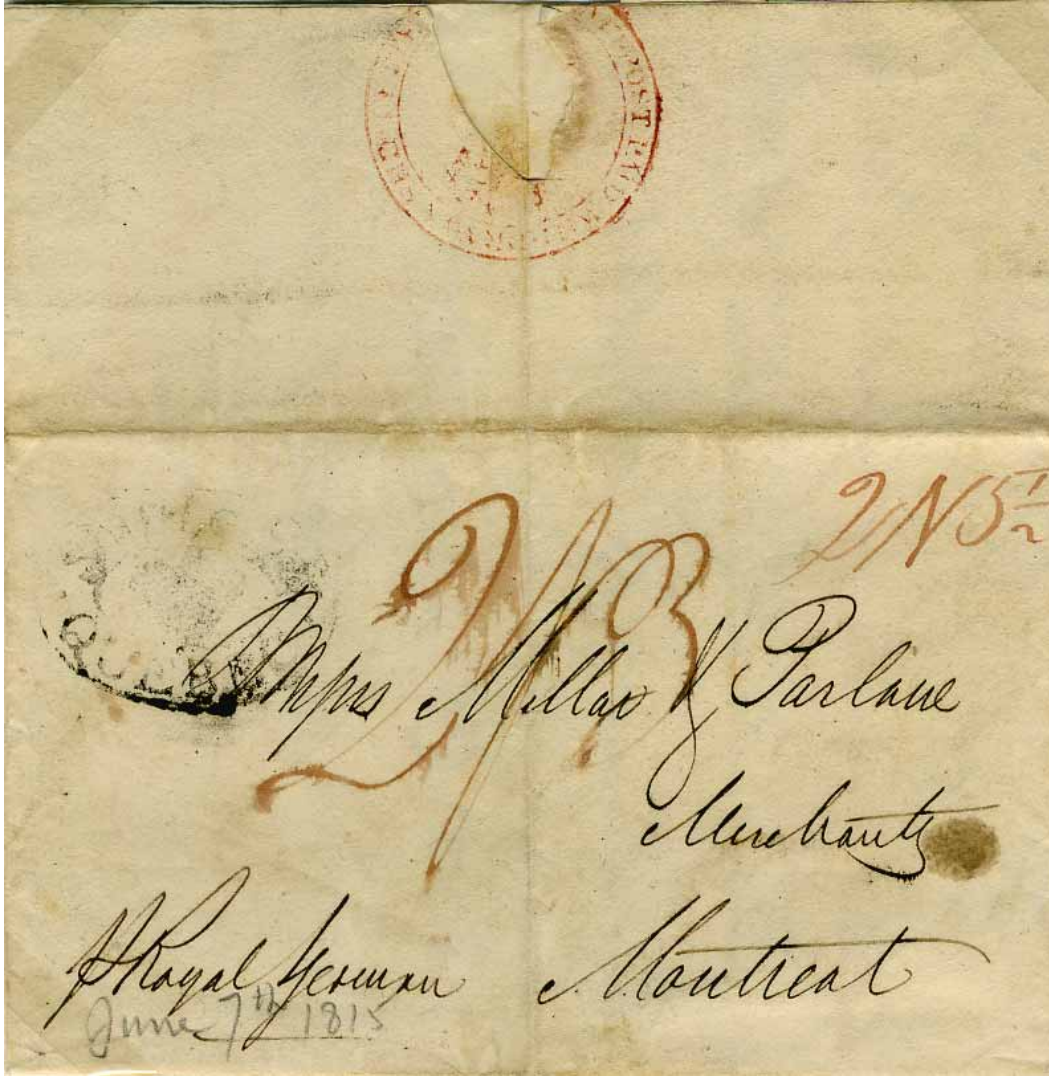 POST PAID
2N5½
2/3
QUEBEC
Messrs Millar & Parlane
Merchants
Montreal
P Royal Yeoman
June 7th 1815